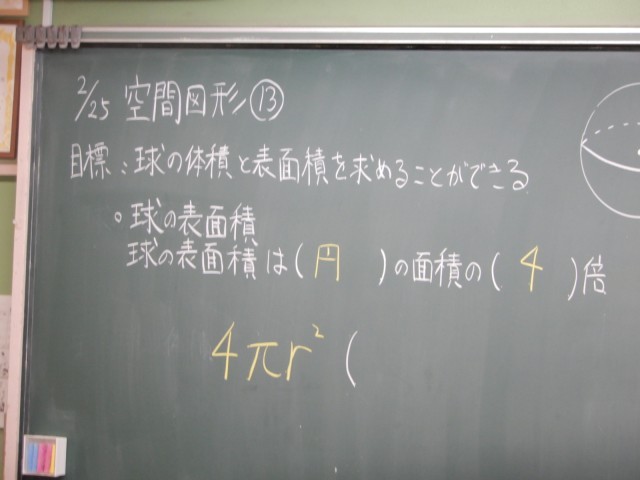 2/25 空間図形⑬
目標：球の体積と表面積を求めることができる
○球の表面積
球の表面積は(円 )の面積の( 4 )倍
4πr² (